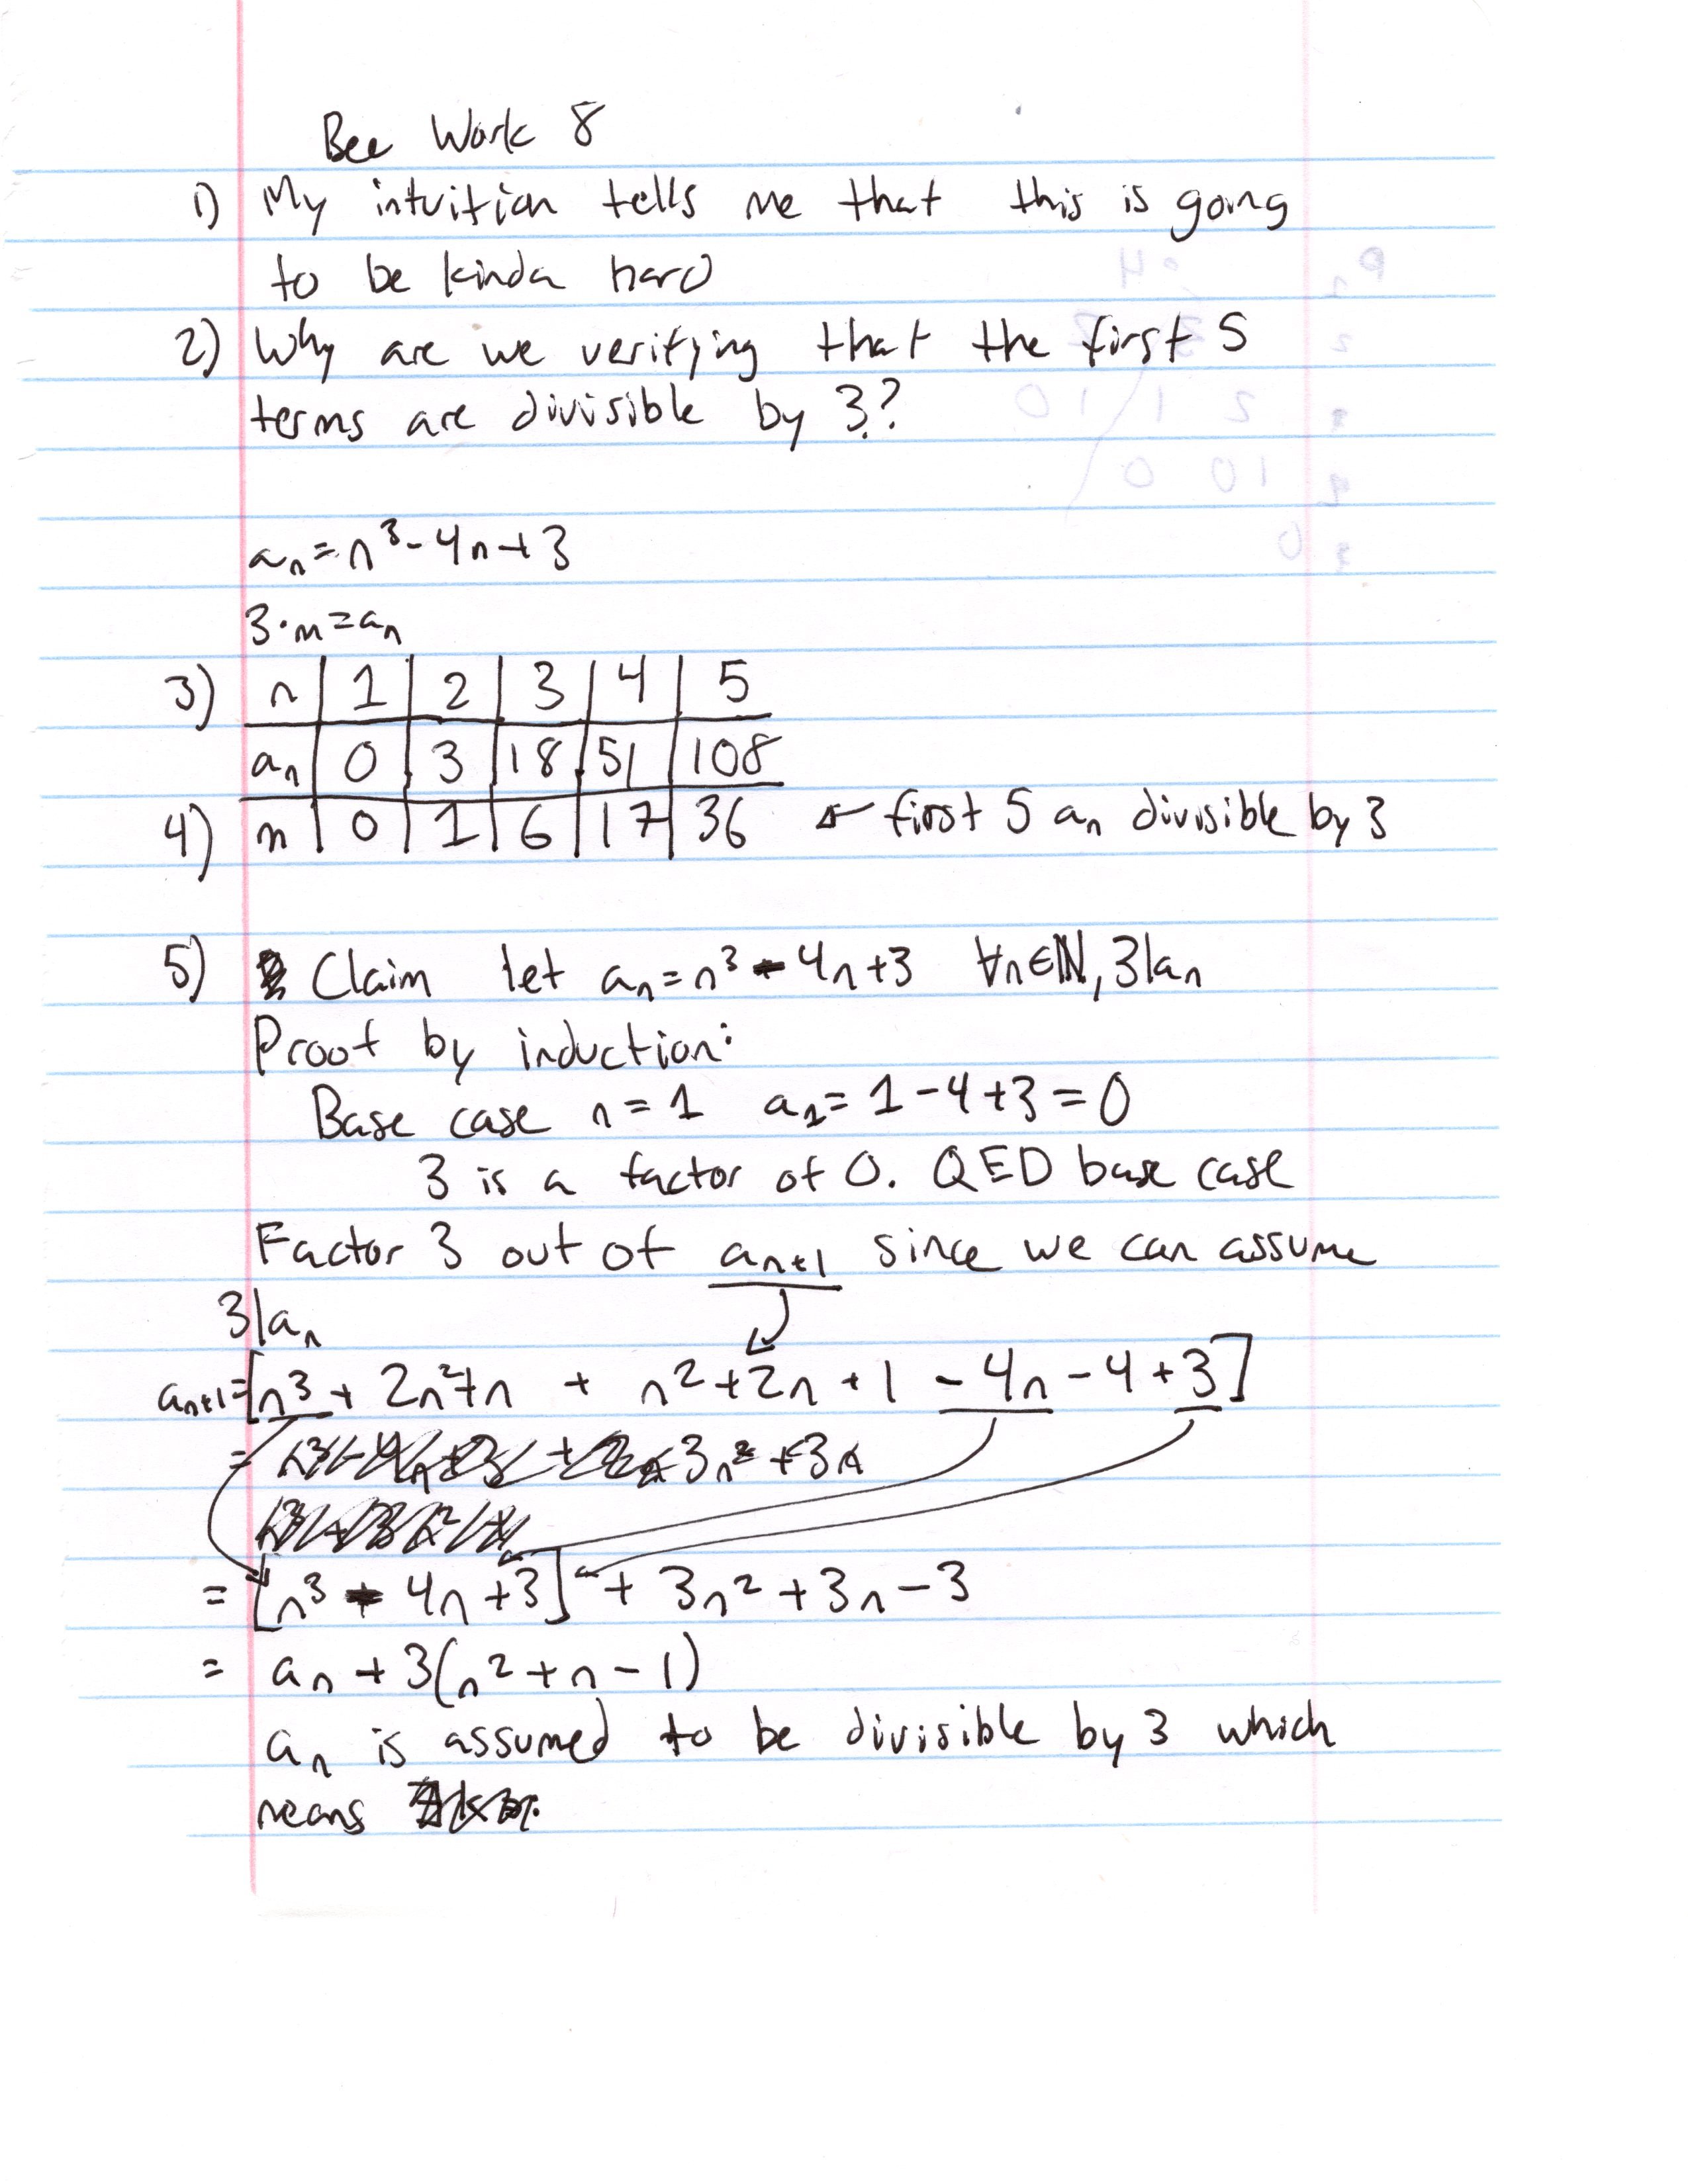 Bee Work 8
1) My intuition tells me that this is going
to be kinda hard
2) Why are we verifying that the first 5
terms are divisible by 3?
aₙ = n³ - 4n + 3
3·m = aₙ
3) n | 1 | 2 | 3 | 4 | 5
aₙ | 0 | 3 | 18 | 51 | 108
4) m | 0 | 1 | 6 | 17 | 36 ← first 5 aₙ divisible by 3
5) Claim let aₙ = n³ - 4n + 3 ∀n∈ℕ, 3|aₙ
Proof by induction:
Base case n = 1 a₁ = 1 - 4 + 3 = 0
3 is a factor of 0. QED base case
Factor 3 out of aₙ₊₁ since we can assume
3|aₙ
aₙ₊₁ = [n³ + 2n² + n + n² + 2n + 1 - 4n - 4 + 3]
= [n³ - 4n + 3] + 3n² + 3n - 3
= aₙ + 3(n² + n - 1)
aₙ is assumed to be divisible by 3 which
means